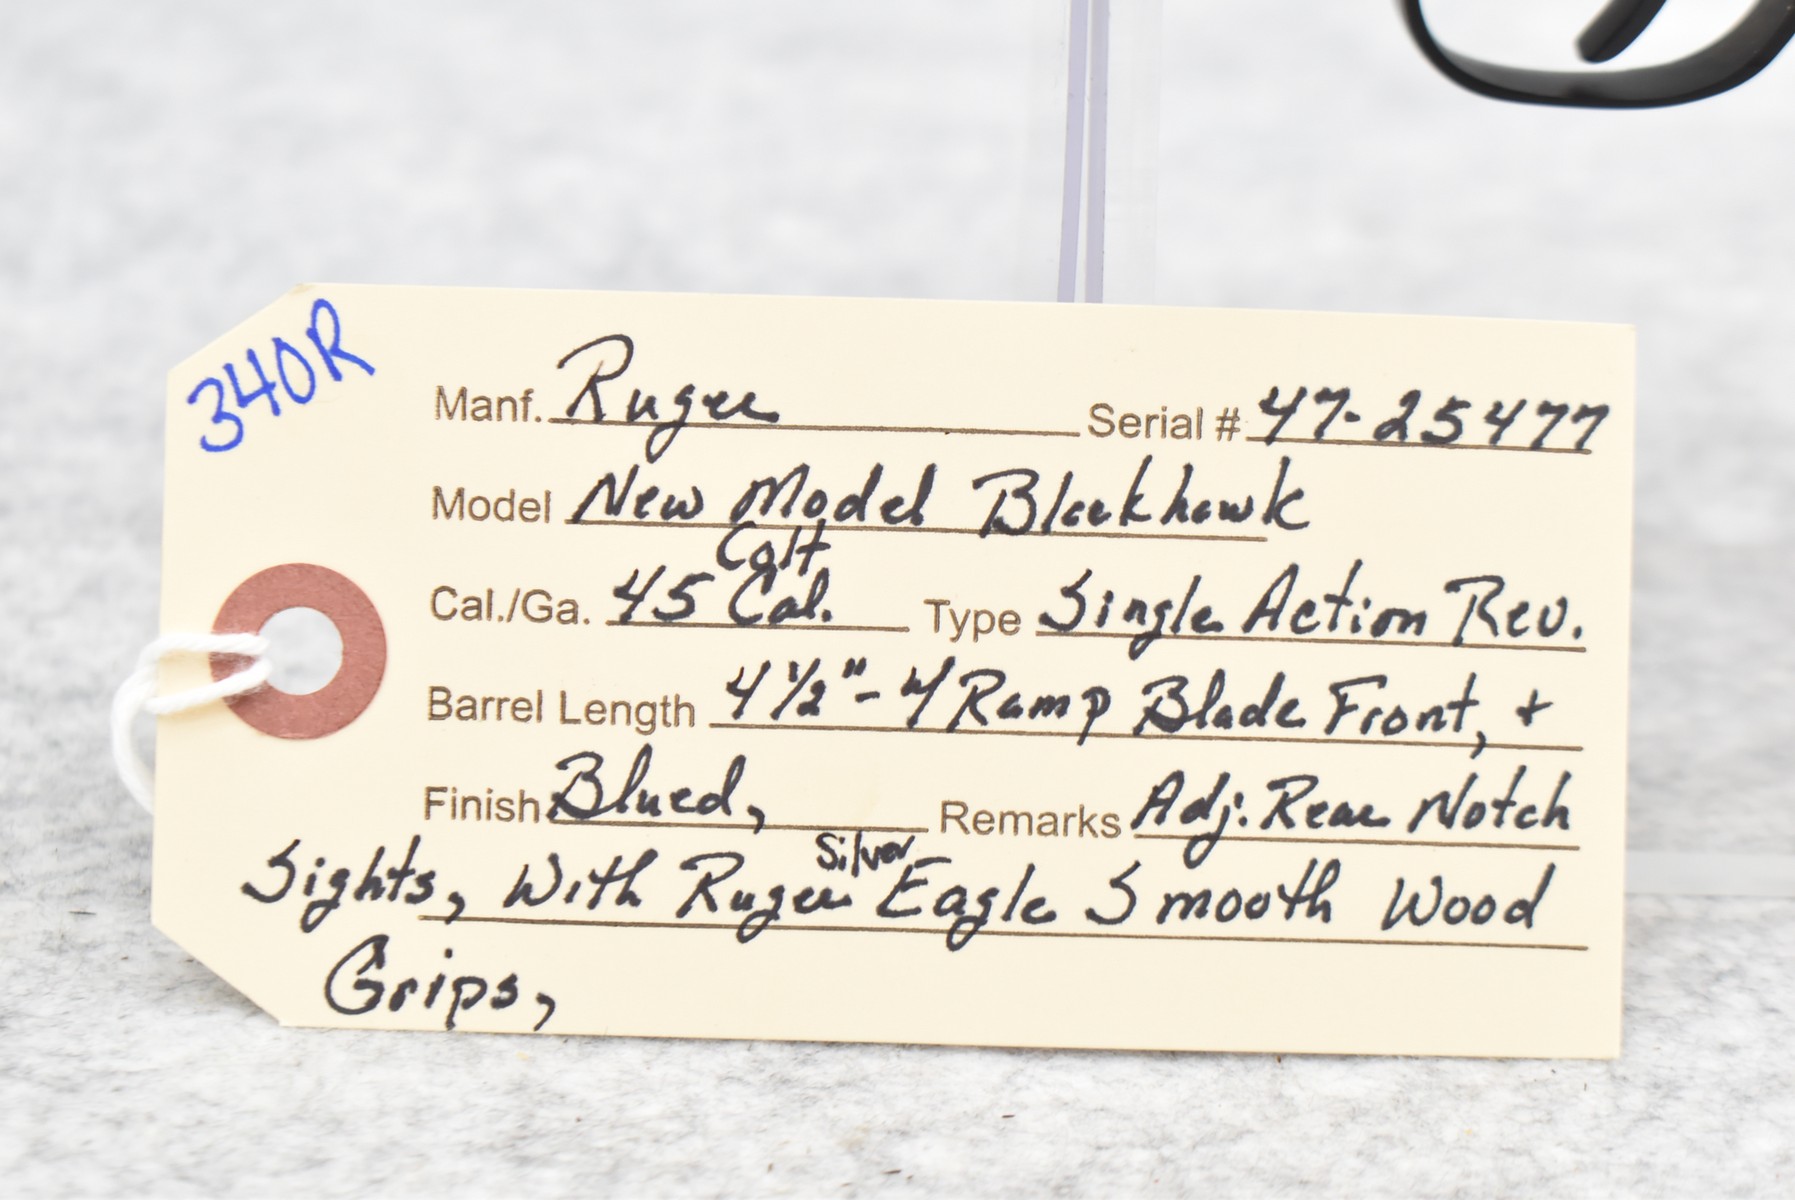 340R
Manf. Ruger Serial # 47-25477
Model New Model Blackhawk
Colt
Cal./Ga. 45 Cal. Type Single Action Rev.
Barrel Length 4 1/2" - w/ Ramp Blade Front, +
Finish Blued, Remarks Adj. Rear Notch
Silver
Sights, With Ruger Eagle Smooth Wood
Grips,